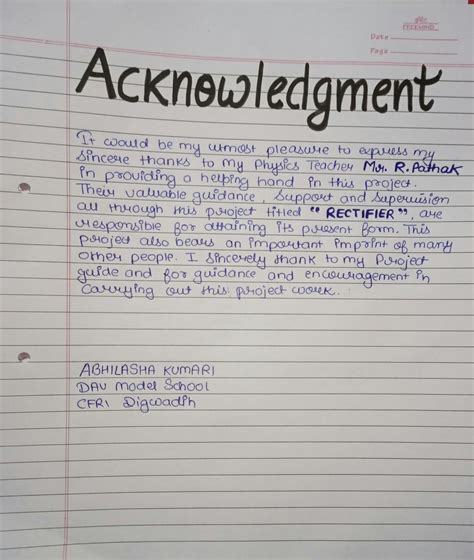 Date
Page
Acknowledgment
It would be my utmost pleasure to express my
sincere thanks to my Physics Teacher Mr. R. Pathak
in providing a helping hand in this project.
Their valuable guidance, Support and Supervision
all through this project titled "RECTIFIER", are
responsible for attaining its present form. This
project also bears an important imprint of many
other people. I sincerely thank to my Project
guide and for guidance and encouragement in
carrying out this project work.
ABHILASHA KUMARI
DAV Model School
CFRI Digwadih